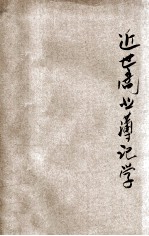 近世商业簿记学